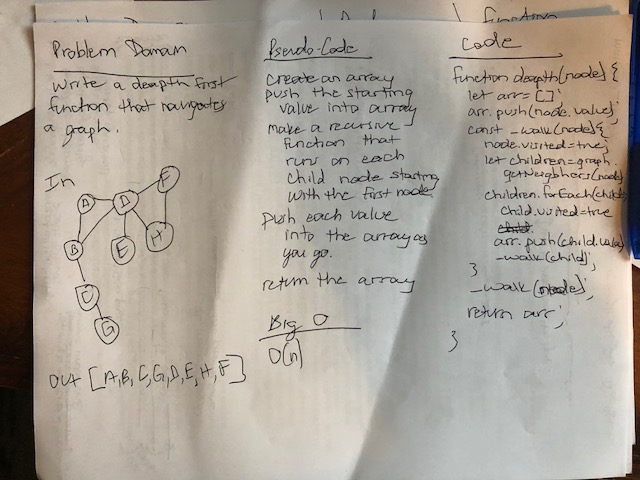 Problem Domain
Write a deapth first
function that navigates
a graph.
In
A
B
C
G
D
E
H
F
Out [A,B,C,G,D,E,H,F]
Pseudo-Code
Create an array
push the starting
value into array
make a recursive
function that
runs on each
child node starting
with the first node
Push each value
into the array as
you go.
return the array
Big O
O(n)
Code
function deapth(node) {
let arr = [];
arr.push(node.value);
const _walk(node) {
node.visited = true;
let children = graph.
getNeighbors(node)
children.forEach(child
child.visited = true
arr.push(child.value)
_walk(child);
}
_walk(node);
return arr;
}